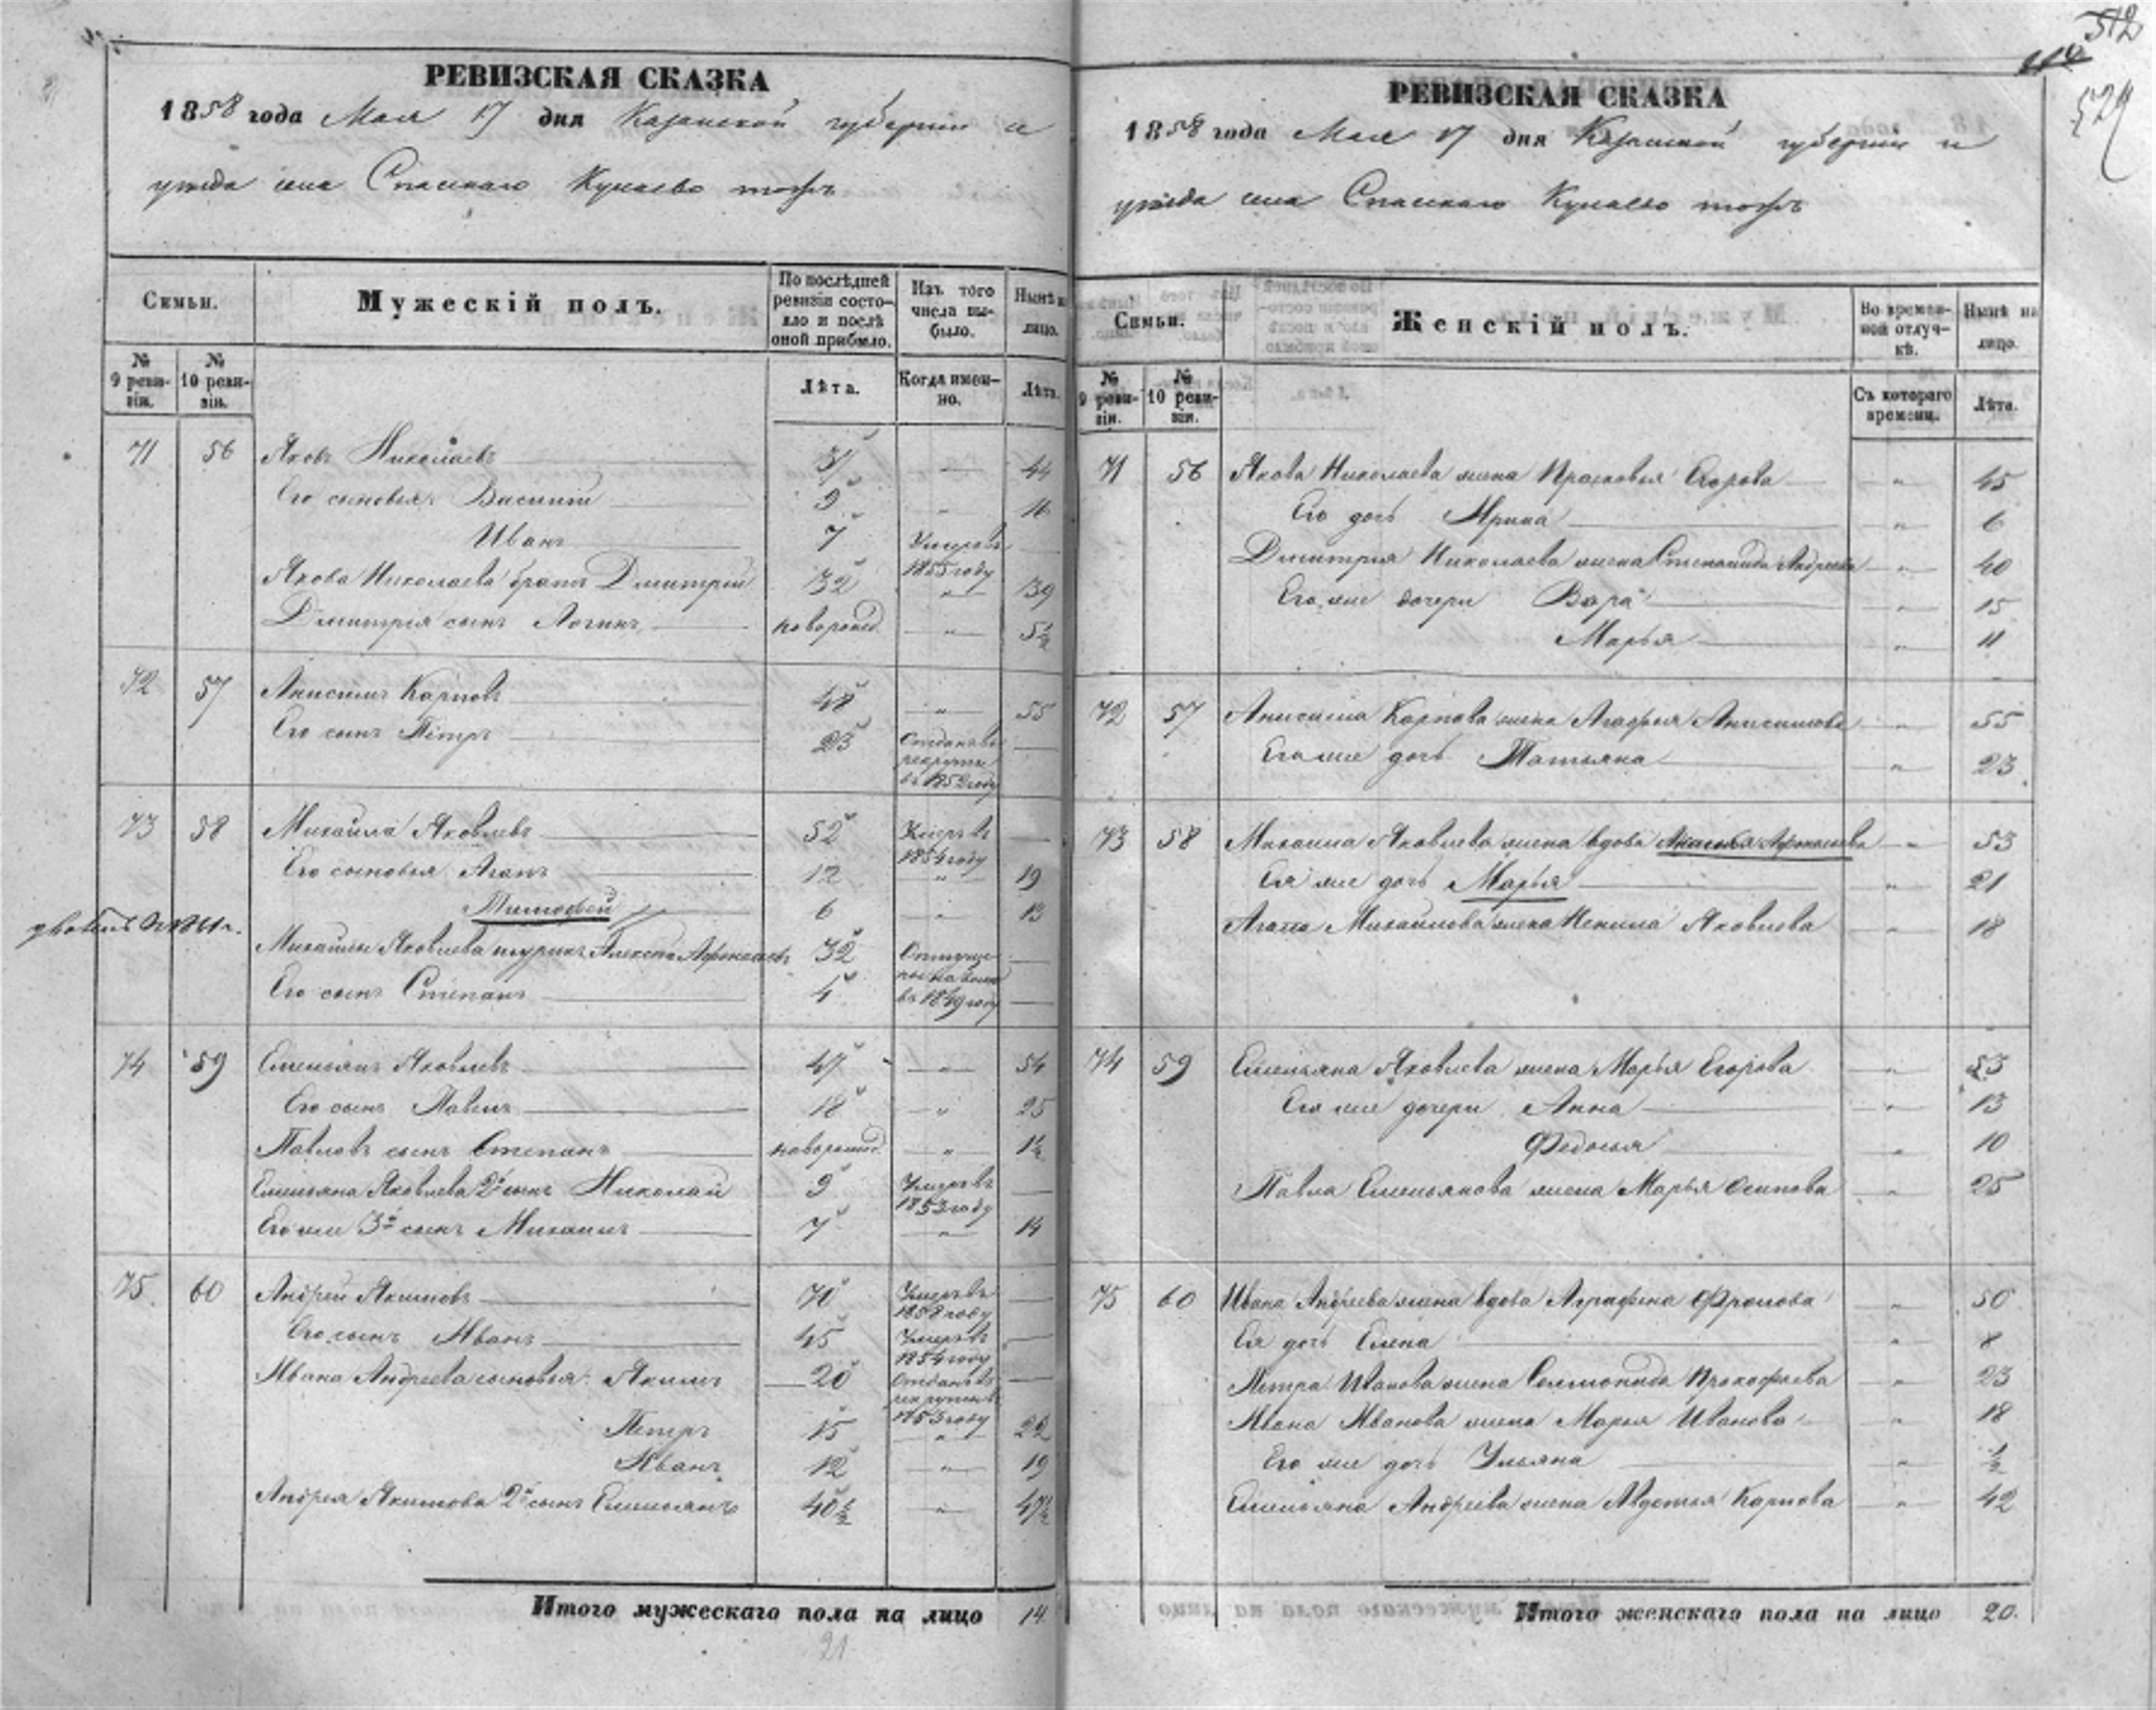 512
114
529
РЕВИЗСКАЯ СКАЗКА
1858 года Мая 17 дня Казанской губернии и
уезда села Спаскаго Кукаево тожъ
Симьи.
Мужескій полъ.
По послѣдней ревизіи состояло и послѣ оной прибыло.
Изъ того числа выбыло.
Нынѣ на лицо.
№ 9 ревизіи.
№ 10 ревизіи.
Лѣта.
Когда именно.
Лѣта.
71 56 Яковъ Николаевъ 37 " 44
Его сыновья Василій 9 " 16
Иванъ 7 Умеръ въ 1855 году
Якова Николаева братъ Дмитрій 32 " 39
Дмитрія сынъ Логинъ новорожд. " 5½
72 57 Анисимъ Карповъ 48 " 55
Его сынъ Петръ 23 Отданъ въ рекруты въ 1852 году
73 58 Михайла Яковлевъ 52 Умеръ въ 1854 году
Его сыновья Агапъ 12 " 19
Тимофей 6 " 13
Михайлы Яковлева шуринъ Алексей Афонасьевъ 32
Его сынъ Степанъ 4 в 1849 году
74 59 Емельянъ Яковлевъ 47 " 54
Его сынъ Павелъ 18 " 25
Павловъ сынъ Степанъ новорожд. " 1½
Емельяна Яковлева 2й сынъ Николай 9 Умеръ въ 1853 году
Его же 3й сынъ Михаилъ 7 " 14
75 60 Андрей Якимовъ 70 Умеръ въ 1858 году
Его сынъ Иванъ 45 Умеръ въ 1854 году
Ивана Андреева сыновья: Якимъ 20 Отданъ въ рекруты в 1853 году
Петръ 15 " 22
Иванъ 12 " 19
Андрея Якимова 2й сынъ Емельянъ 40½ " 47½
Итого мужескаго пола на лицо 14
21
РЕВИЗСКАЯ СКАЗКА
1858 года Мая 17 дня Казанской губернии и
уезда села Спаскаго Кукаево тожъ
Симьи.
Женскій полъ.
Во временной отлучкѣ.
Нынѣ на лицо.
№ 9 ревизіи.
№ 10 ревизіи.
Съ котораго времени.
Лѣта.
71 56 Якова Николаева жена Прасковья Егорова " 45
Его дочь Ирина " 6
Дмитрия Николаева жена Степанида Андреева " 40
Его же дочери Вера " 15
Марья " 11
72 57 Анисима Карпова жена Агафья Анисимова " 55
Его же дочь Татьяна " 23
73 58 Михаила Яковлева жена вдова Афонасьева " 53
Ея же дочь Марья " 21
Агапа Михайлова жена Яковлева " 18
74 59 Емельяна Яковлева жена Марья Егорова " 53
Его же дочери Анна " 13
Федосья " 10
Павла Емельянова жена Марья Осипова " 25
75 60 Ивана Андреева жена вдова Аграфена Фролова " 50
Ея дочь Елена " 8
Петра Иванова жена Прокофьева " 23
Ивана Иванова жена Марья Иванова " 18
Его же дочь Ульяна " ½
Емельяна Андреева жена Авдотья Карпова " 42
Итого женскаго пола на лицо 20.